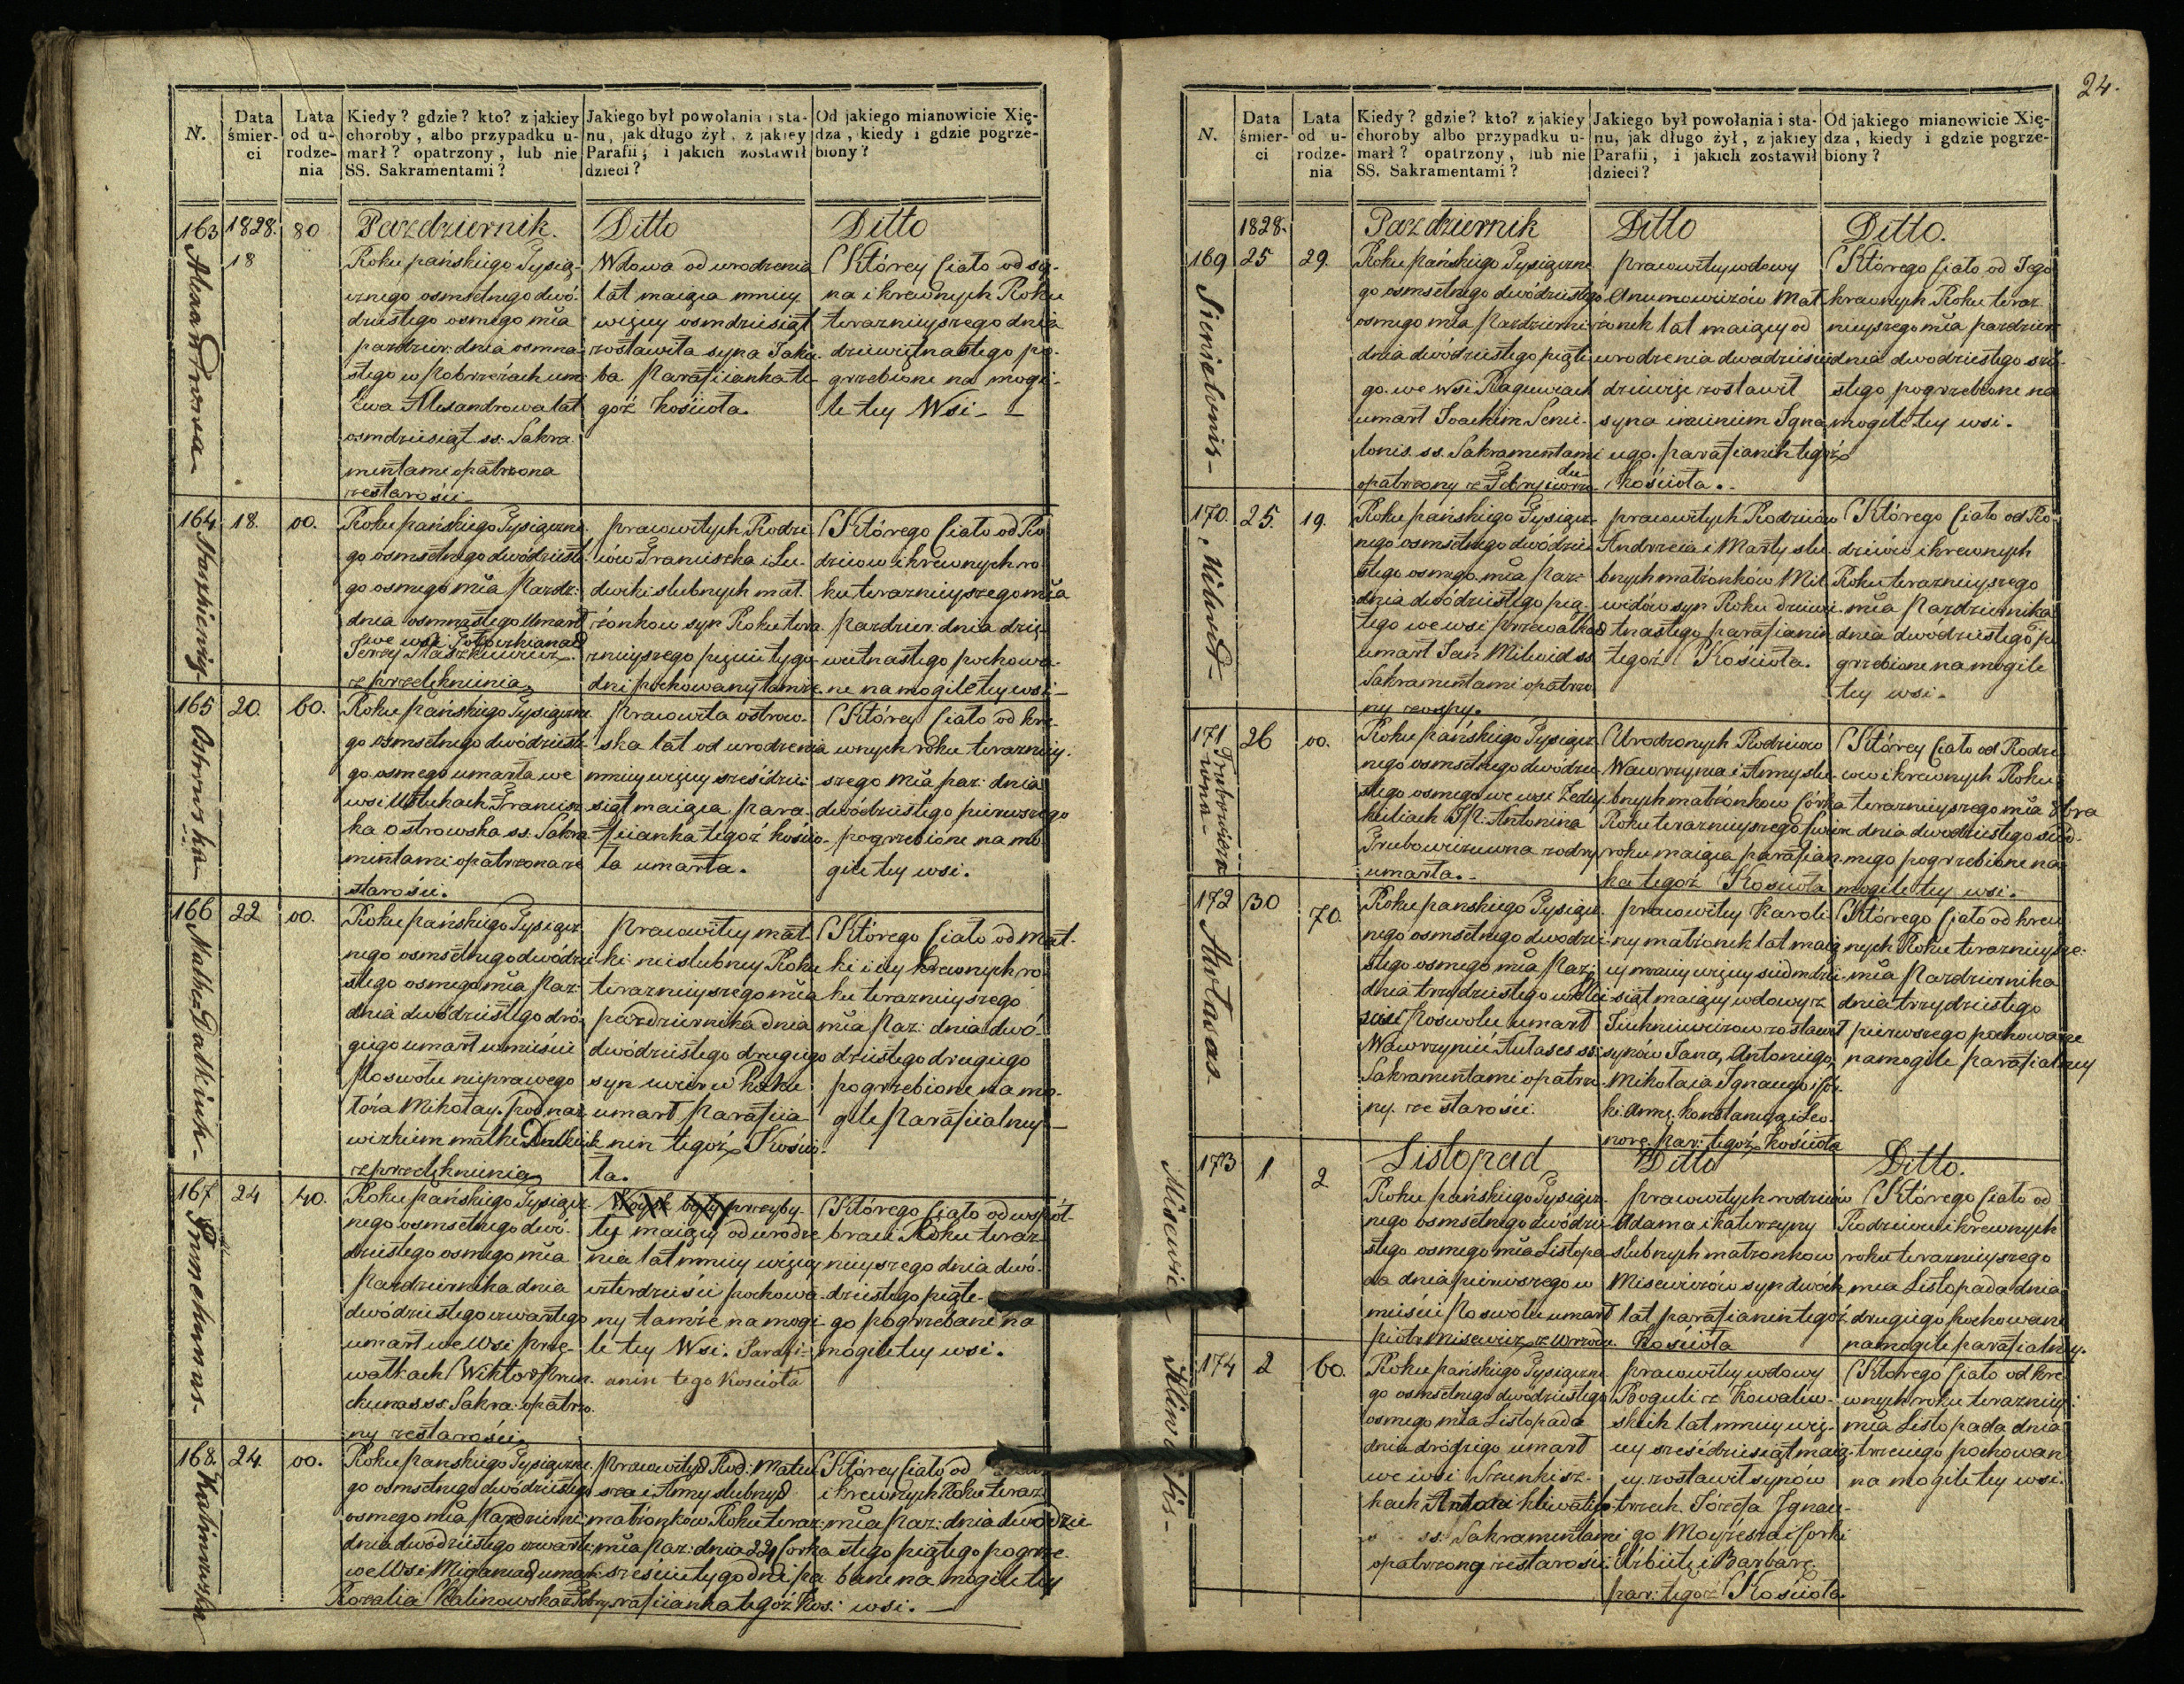 N.
Data śmier-
ci
Lata
od u-
rodze-
nia
Kiedy? gdzie? kto? z jakiey
choroby, albo przypadku u-
marł? opatrzony, lub nie
SS. Sakramentami?
Jakiego był powołania i sta-
nu, jak długo żył, z jakiey
Parafii, i jakich zostawił
dzieci?
Od jakiego mianowicie Xię-
dza, kiedy i gdzie pogrze-
biony?
163
1828.
18
80
Pazdziernik.
Roku pańskiego Tysią-
cznego osmsetnego dwó-
dziestego osmego mca
pazdzier: dnia osmna-
stego w Pobrzeżach um:
Ewa Alexandrowa lat
osmdziesiąt ss: Sakra
mentami opatrzona
ze starości.
Ditto
Wdowa od urodzenia
lat maiąca mniey
więcey osmdziesiąt
zostawiła syna Jaku-
ba. Parafiianka te-
goż Kościoła.
Ditto
Którey Ciało od sy-
na i krewnych Roku
terazniyszego dnia
dziewiętnastego po-
grzebione na mogi-
le tey Wsi
164
18.
00.
Roku pańskiego Tysiączne
go osmsetnego dwódzieste
go osmego mca Pazdz:
dnia osmnastego Umarł
we wsi
Jerzy Staszkiewicz
z przelęknienia
Staszkiewicz
pracowitych Rodzi-
ców Franciszka i Lu-
dwiki slubnych mał-
żonkow syn Roku tera-
zniyszego pięciu tygo-
dni pochowany tamże
Którego Ciało od Ro
dzicow i krewnych ro
ku terazniyszego mca
Pazdzier: dnia dzie-
wietnastego pochowa-
ne na mogile tey wsi
165
20.
60.
Ostrowska
Roku Pańskiego Tysiączne
go osmsetnego dwódzieste
go osmego umarła we
wsi Franciszka
ka Ostrowska ss. Sakra
mentami opatrzona ze
starości.
Pracowita ostrow-
ska lat od urodzenia
mniey więcey sześćdzie-
siąt maiąca, Para-
fiianka tegoż kościo-
ła umarła.
Którey Ciało od kre
wnych roku terazniey
szego mca paz: dnia
dwódziestego pierwszego
pogrzebione na mo
gile tey wsi.
166
22
00.
Roku pańskiego Tysiącz
nego osmsetnego dwódzie
stego osmego mca Paz:
dnia dwódziestego dró-
giego umarł w miescie
Poswolu nieprawego
łóża Mikołay. Pod naz
wizkiem matki
z przelęknienia
Pracowitey mat-
ki nieslubney Roku
terazniyszego mca
pazdziernika dnia
dwódziestego drugiego
syn Roku
umarł Parafiia
nin tegoż Kościo
ła.
Którego Ciało od mat-
ki i iey krewnych ro
ku terazniyszego
mca Paz: dnia dwó-
dziestego drugiego
pogrzebione na mo-
gile Parafiialney
167
24
40.
Roku Pańskiego Tysiącz
nego osmsetnego dwó-
dziestego osmego mca
Pazdziernika dnia
dwódziestego czwartego
umarł we Wsi Prze-
watkach Wiktor
ss: Sakra: opatrzo
ny ze starości.
przyby-
ły maiący od urodze
nia lat mniey więcey
czterdzieści pochowa-
ny tamże na mogi-
le tey Wsi. Parafi-
anin tego Kościoła
Którego Ciało od współ-
braci Roku teraz-
niyszego dnia dwó-
dziestego piąte-
go pogrzebane na
mogile tey wsi.
168.
24.
00.
Kalinowska
Roku Pańskiego Tysiączne
go osmsetnego dwódziestego
osmego mca Pazdzierni:
dnia dwódziestego czwarte:
we Wsi umar:
Rozalia Kalinowska
pracowitych Rod: Mateu-
sza i Anny slubnych
małżonkow Roku teraz:
mca Paz: dnia 24 Corka
sześciu tygodni pa
rafiianka tegoż Koś:
Którey Ciało od
i krewnych Roku teraz
mca Paz: dnia dwódzie
stego piątego pogrze
bane na mogile tey
wsi.
24.
N.
Data śmier-
ci
Lata
od u-
rodze-
nia
Kiedy? gdzie? kto? z jakiey
choroby albo przypadku u-
marł? opatrzony, lub nie
SS. Sakramentami?
Jakiego był powołania i sta-
nu, jak długo żył, z jakiey
Parafii, i jakich zostawił
dzieci?
Od jakiego mianowicie Xię-
dza, kiedy i gdzie pogrze-
biony?
169
1828.
25
29.
Pazdziernik
Roku Pańskiego Tysiączne
go osmsetnego dwódziestego
osmego mca Pazdzierni
dnia dwódziestego piąte
go. we wsi
umarł Joachim
ss. Sakramentami
opatrzony z
Ditto
pracowitey wdowy
mał
żonek lat maiący od
urodzenia dwadzieścia
dziewięć zostawił
syna imieniem Igna
cego. parafianin tegoż
Kościoła.
Ditto.
Którego Ciało od Jego
krewnych Roku teraz
niyszego mca pazdzier
dnia dwodziestego szó-
stego pogrzebione na
mogile tey wsi.
170.
25.
19.
Milwid
Roku pańskiego Tysiącz-
nego osmsetnego dwódzie
stego osmego mca Paz:
dnia dwódziestego pią-
tego we wsi Przewatkach
umarł Jan Milwid ss
Sakramentami opatrzo
ny z ospy.
pracowitych Rodzicow
Andrzeia i Marty slu-
bnych małżonków Mil
widów syn Roku dziewię
tnastego parafianin
tegoż Kościoła.
Którego Ciało od Ro-
dziców i krewnych
Roku terazniyszego
mca Pazdziernika
dnia dwódziestego po
grzebione na mogile
tey wsi.
171
26
00.
Roku Pańskiego Tysiącz
nego osmsetnego dwódzie
stego osmego we wsi
JP. Antonina
umarła.
Urodzonych Rodzicow
Wawrzynca i Anny slu-
bnych małżonkow Córka
Roku terazniyszego
roku maiąca parafian
ka tegoż Kościoła
Którey Ciało od Rodzi
cow i krewnych Roku
terazniyszego mca 8bra
dnia dwódziestego siód-
mego pogrzebione na
mogile tey wsi.
172
30
70.
Roku pańskiego Tysiącz-
nego osmsetnego dwodzie
stego osmego mca Paz:
dnia trzydziestego w
Poswolu umarł
Wawrzyniec ss:
Sakramentami opatrzo-
ny. ze starości.
pracowitey Karoli-
ny małżonek lat maią
cy mniey więcey siedmdzie-
siąt maiący wdowy z
zostawił
synów Jana, Antoniego,
Mikołaia Ignacego i Cór-
ki Annę Konstancyą i Leo-
norę. Par: tegoż Kościoła
Którego Ciało od krew
nych Roku terazniysze:
mca Pazdziernika
dnia trzydziestego
pierwszego pochowane
na mogile parafialney
173
1
2
Misewicz
Listopad
Roku pańskiego Tysiącz-
nego osmsetnego dwódzie-
stego osmego mca Listopa
da dnia pierwszego w
mieście Poswolu umarł
Piotr Misewicz z wrzodu.
Ditto
pracowitych rodziców
Adama i Katerzyny
slubnych małżonkow
Misewiczów syn dwóch
lat, parafianin tegoż
Kościoła
Ditto.
Którego Ciało od
Rodzicow i krewnych
roku terazniyszego
mca Listopada dnia
drugiego pochowane
na mogile parafialney.
174
2
60.
Roku Pańskiego Tysiączne
go osmsetnego dwódziestego
osmego mca Listopada
dnia drógiego umarł
we wsi
kach Antoni
ss: Sakramentami
opatrzony ze starości.
pracowitey wdowy
Boguli z Kowalew-
skich lat mniey wię-
cey sześćdziesiąt maią-
cy. zostawił synów
trzech Józefa Ignace-
go Moyżesza i Corki
Elżbiétę i Barbarę.
par: tegoż Kościoła
Którego Ciało od kre
wnych roku terazniey:
mca Listopada dnia
trzeciego pochowane
na mogile tey wsi.